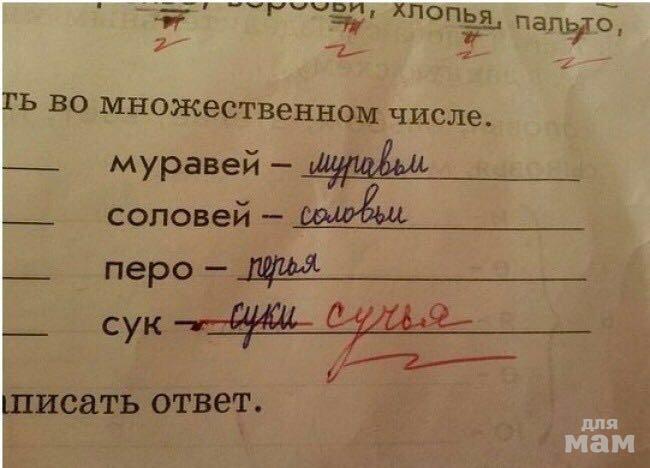 воробьи, хлопья, пальто,
ть во множественном числе.
муравей – муравьи
соловей – соловьи
перо – перья
сук – суки сучья
писать ответ.
для
мам